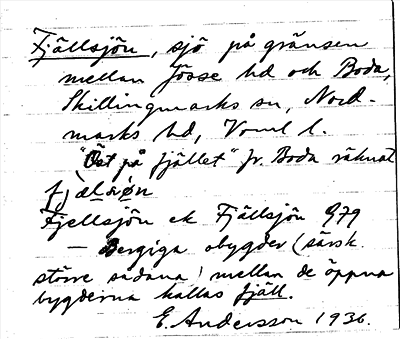 Fjällsjön, sjö på gränsen
mellan Jösse hd och Boda,
Skillingmarks sn, Nord-
marks hd, Vrml l.
"Öst på fjället" fr. Boda räknat
fjälsøn
Fjellsjön ek Fjällsjön G79
— Bergiga obygder (särsk.
större sådana) mellan de öppna
bygderna kallas fjäll.
E. Andersson 1936.